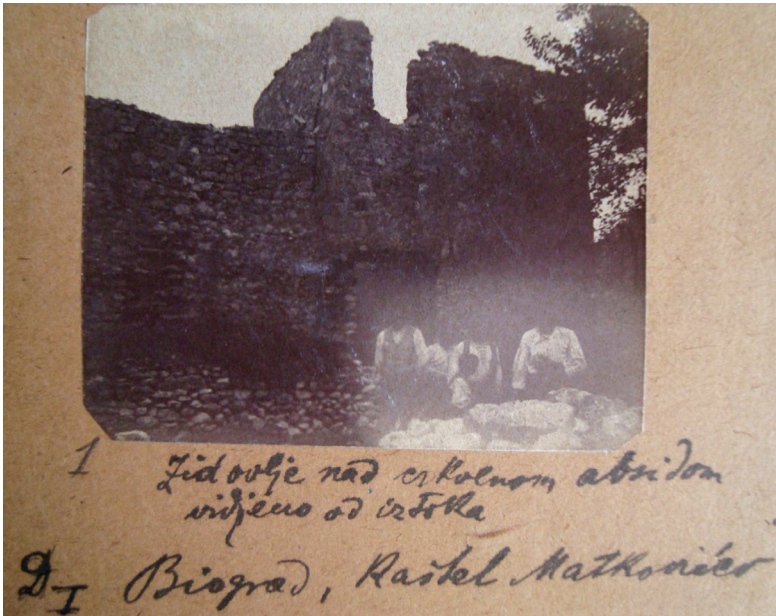 1 Zidovlje nad crkvenom absidom
vidjeno od iztoka
D I Biograd, Kaštel Matkovićev